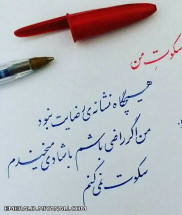 سکوتِ من
هیچگاه نشانه‌ی رضایت نبود
من اگر راضی باشم با شادی میخندم
سکوت نمی‌کنم
EMERALD.MIHANALI.COM